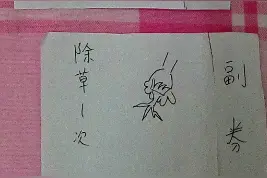 除草1次
副券